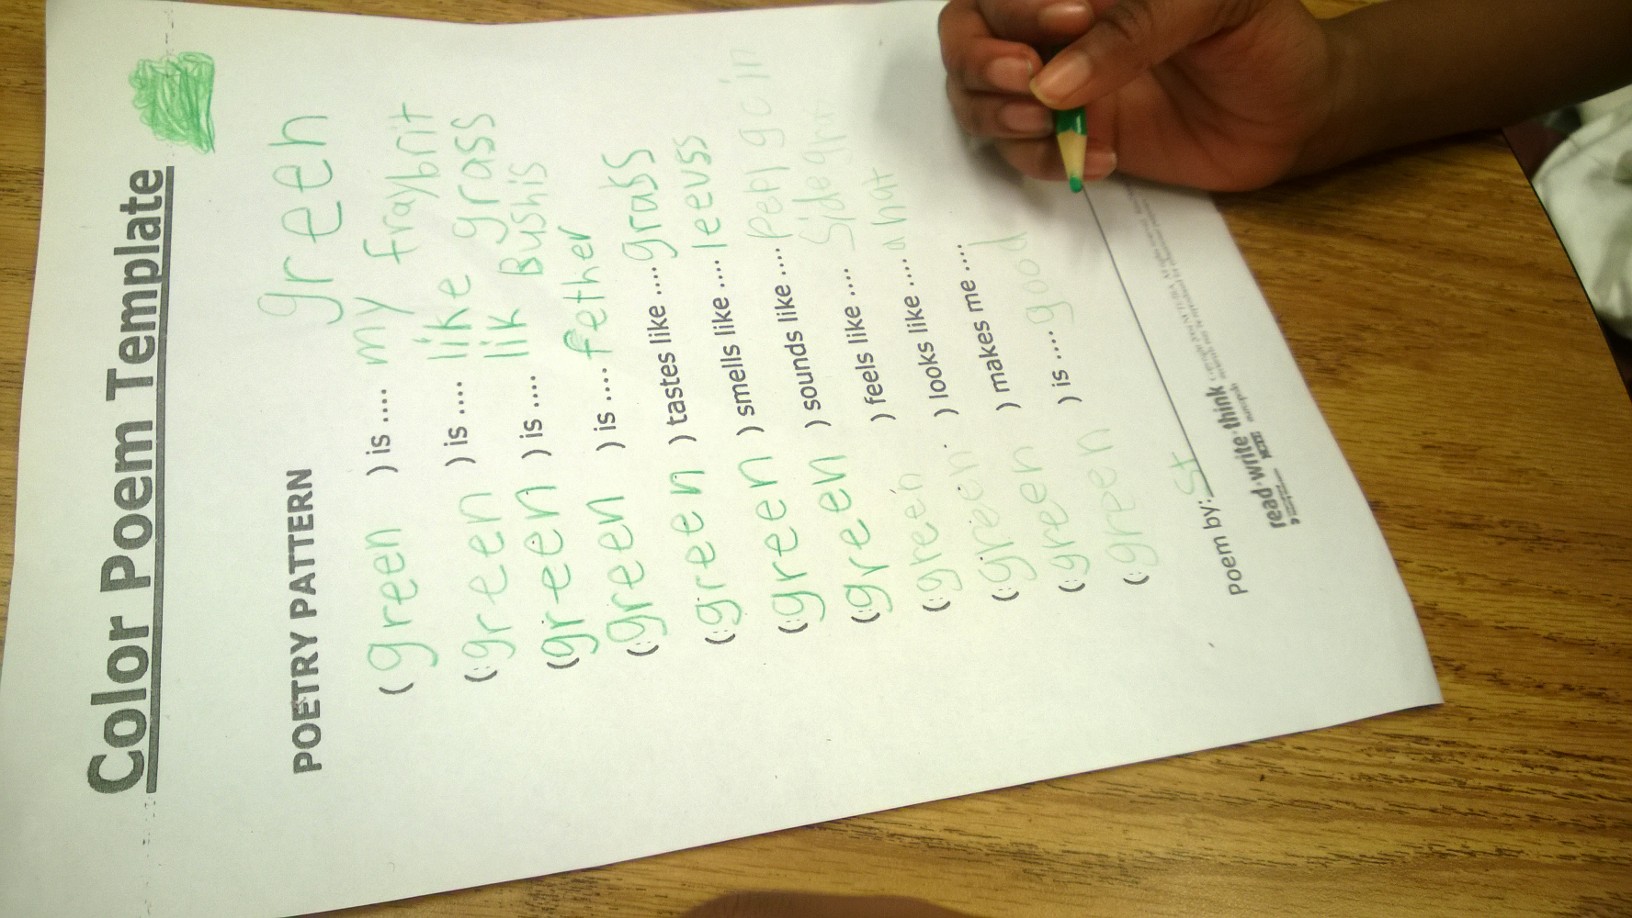 Color Poem Template
green
POETRY PATTERN
(green) is .... my fraybrit
(green) is .... like grass
(green) is .... lik Bushis
(green) is .... fether
(green) tastes like .... grass
(green) smells like .... leevss
(green) sounds like .... going in
(green) feels like ....
(green) looks like .... a hat
(green) makes me ....
(green) is .... good
Poem by: St
read·write·think